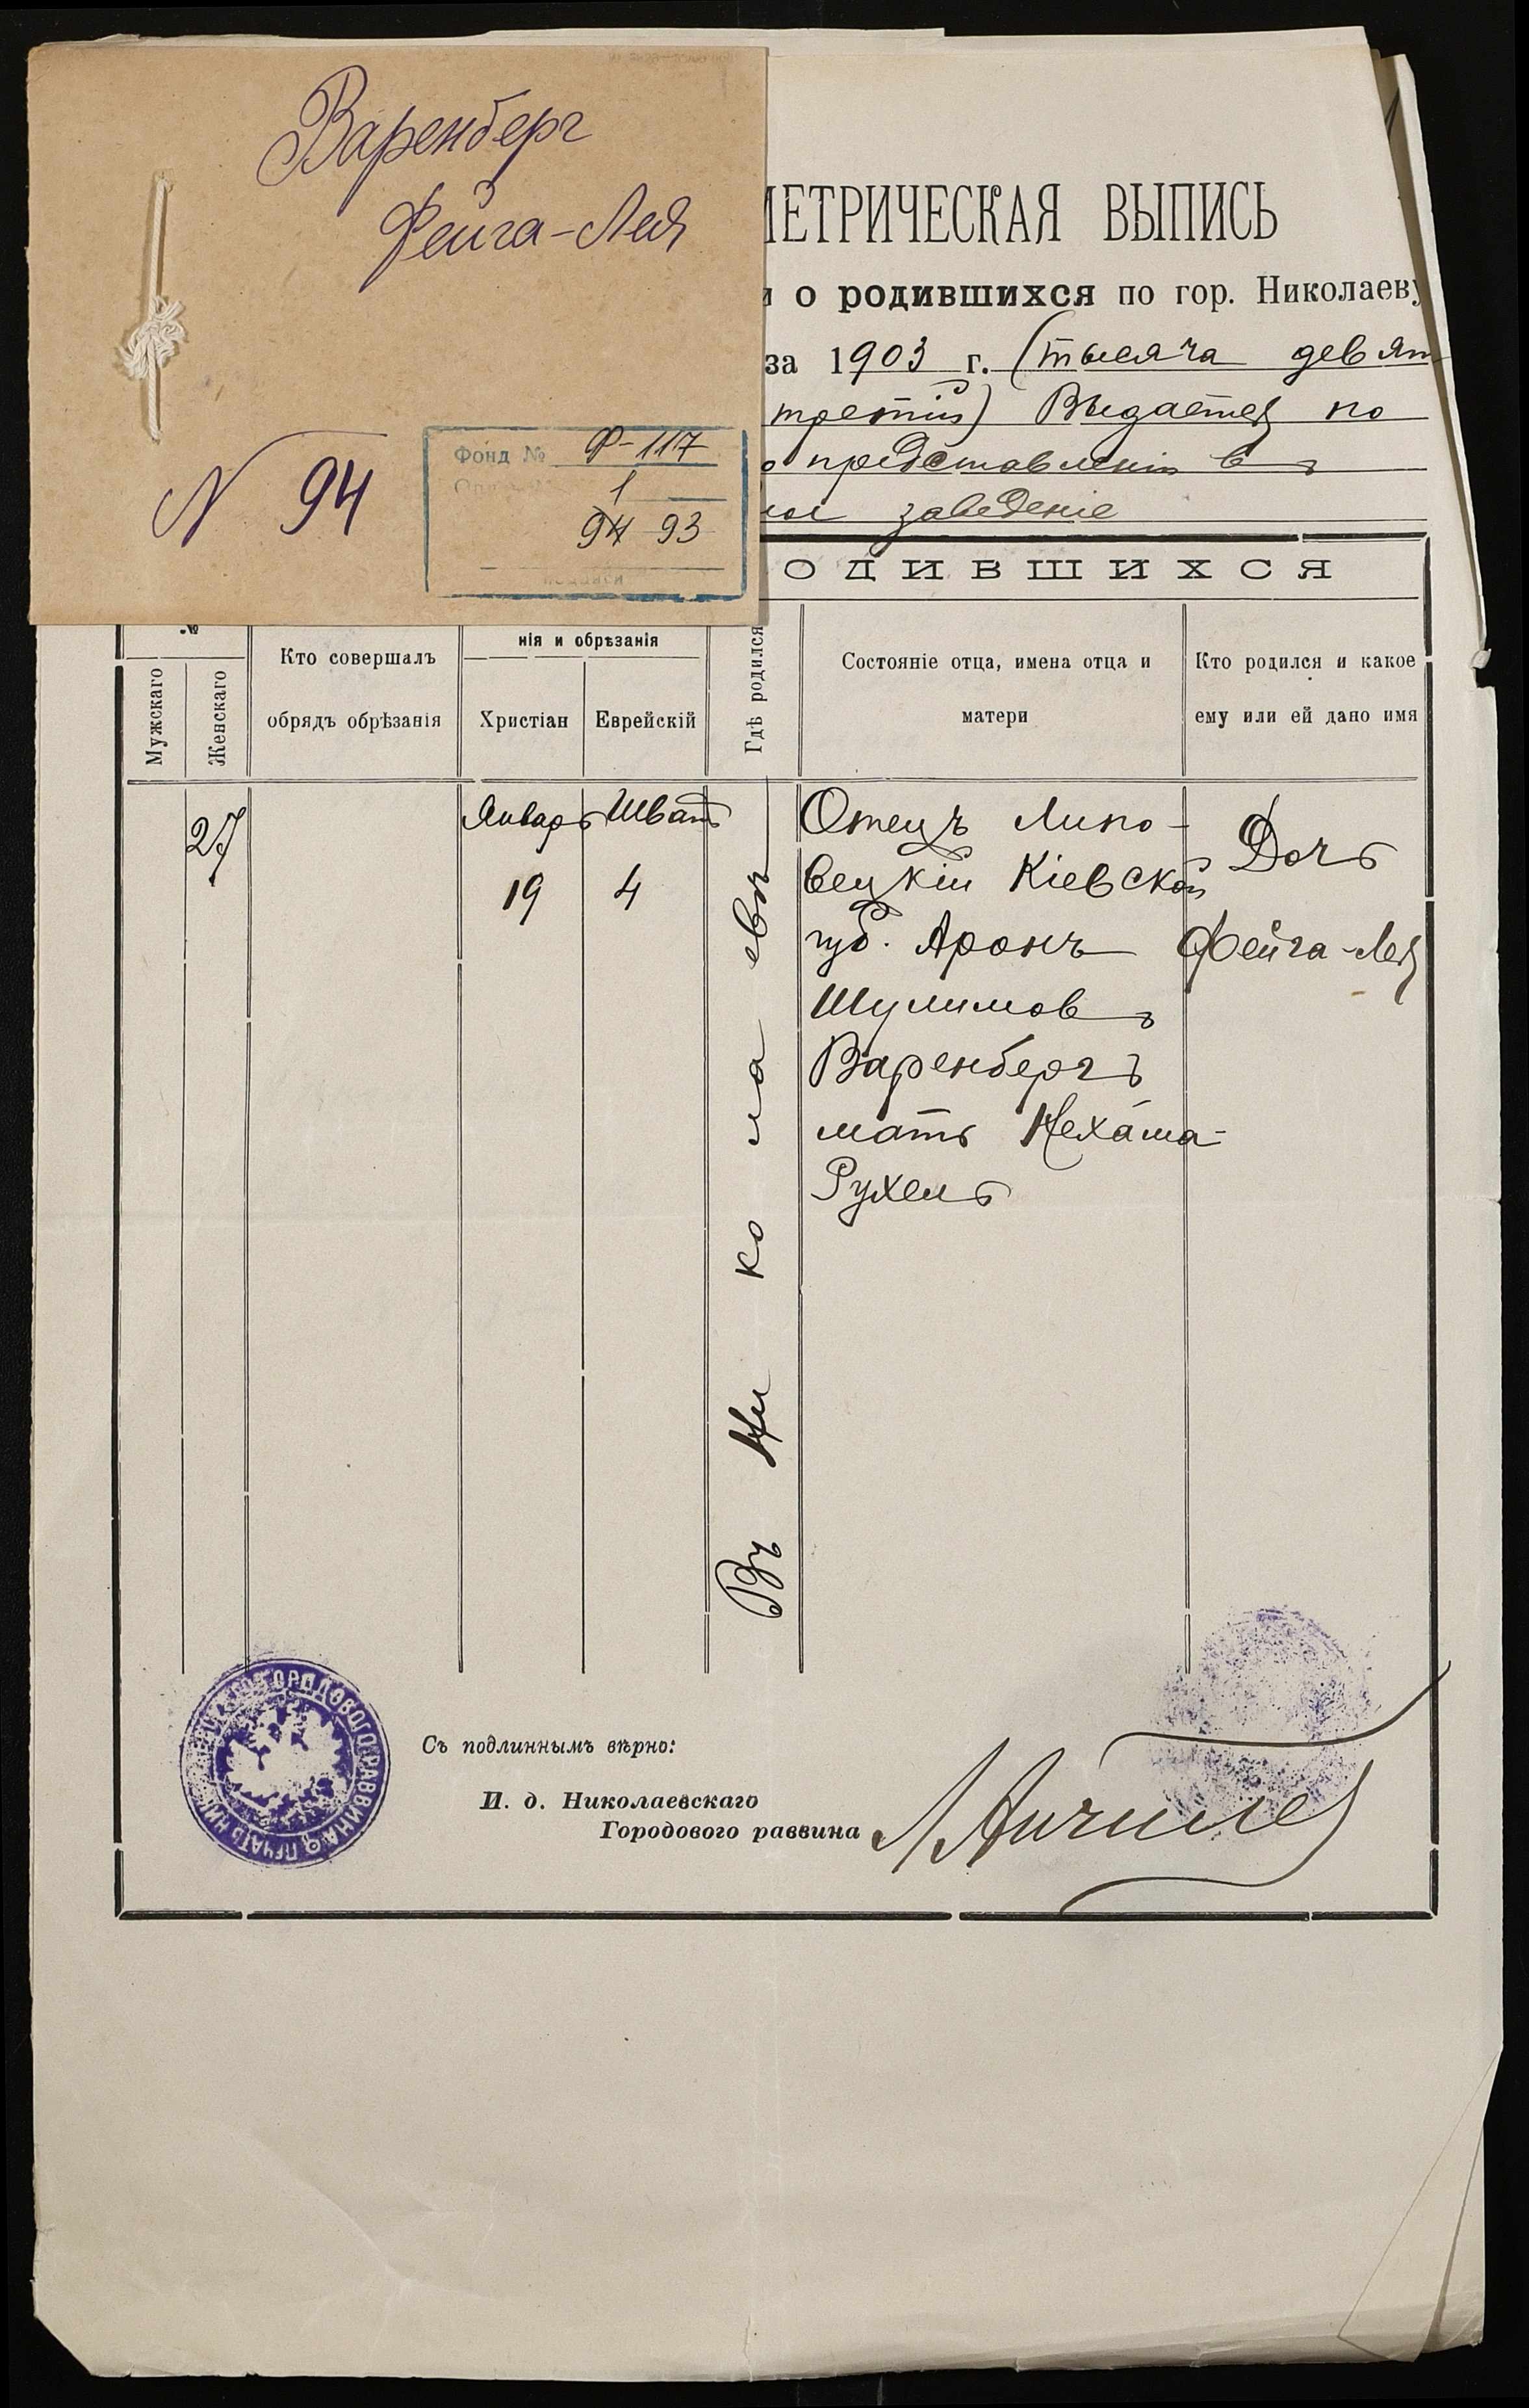 Варенберг
Фейга-Лея
N 94
Фонд № Ф-117
1
94 93
МЕТРИЧЕСКАЯ ВЫПИСЬ
о родившихся по гор. Николаеву
за 1903 г. (тысяча девят
третій) Выдается по
представленія въ
заведеніе
ОДИВШИХСЯ
№
Мужскаго
Женскаго
Кто совершалъ
обрядъ обрѣзанія
нія и обрѣзанія
Христіан
Еврейскій
Гдѣ родился
Состояніе отца, имена отца и
матери
Кто родился и какое
ему или ей дано имя
27
Январь
19
Шватъ
4
Въ Николаевѣ
Отецъ Липо-
вецкій Кіевской
губ. Аронъ
Шулимовъ
Варенбергъ
мать Неха́ма-
Рухель
Дочь
Фейга-Лея
ГОРОДОВОГО РАВВИНА ПЕЧАТЬ
Съ подлиннымъ вѣрно:
И. д. Николаевскаго
Городового раввина